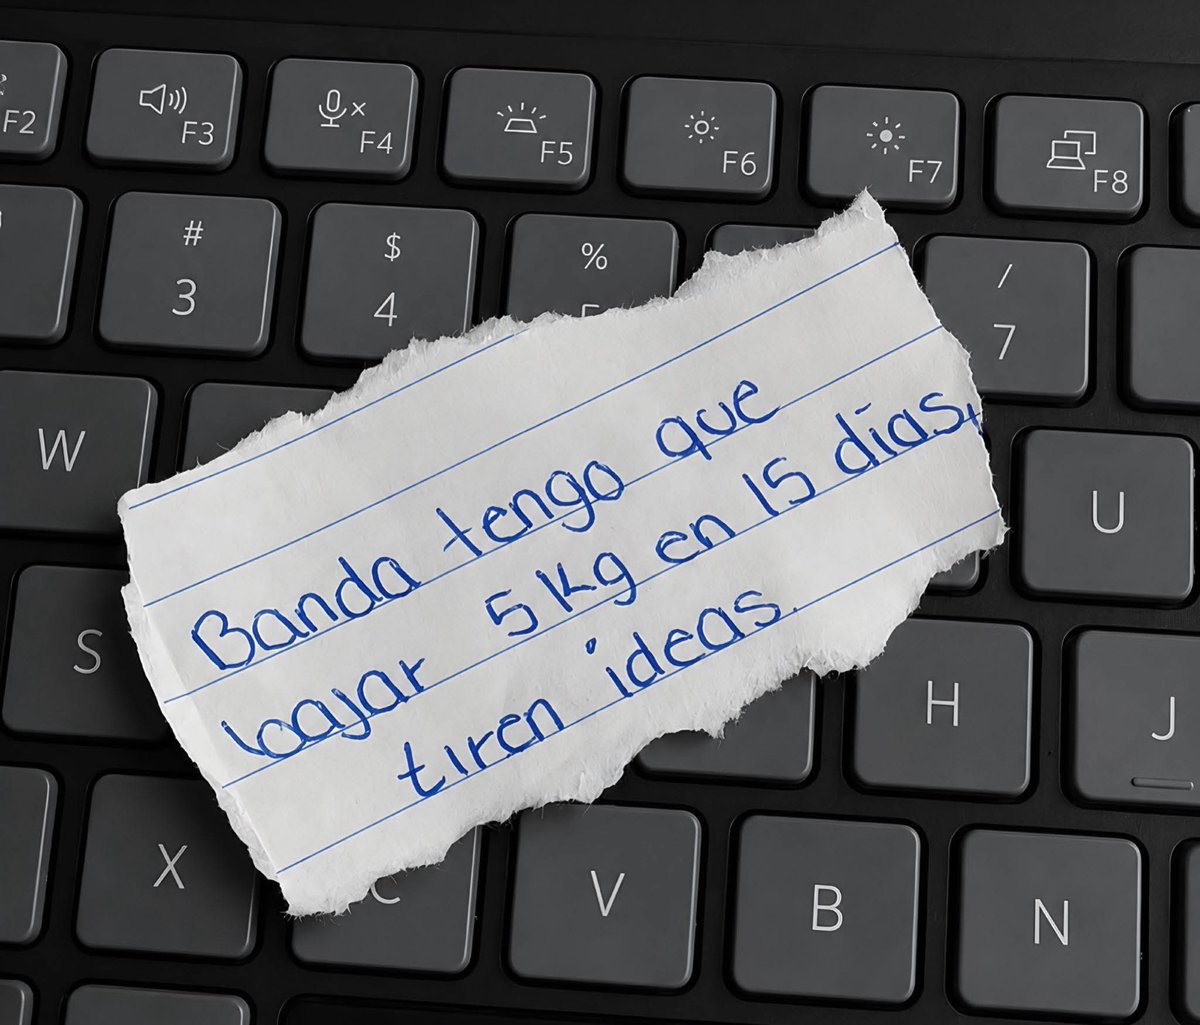 F2 F3 F4 F5 F6 F7 F8
# $ % /
3 4 7
W U
S H J
X C V B N
Banda tengo que
bajar 5 kg en 15 días,
tiren ideas.